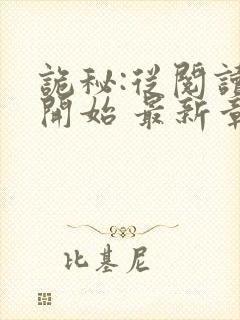 詭秘:從閱讀
開始 最新章
比基尼